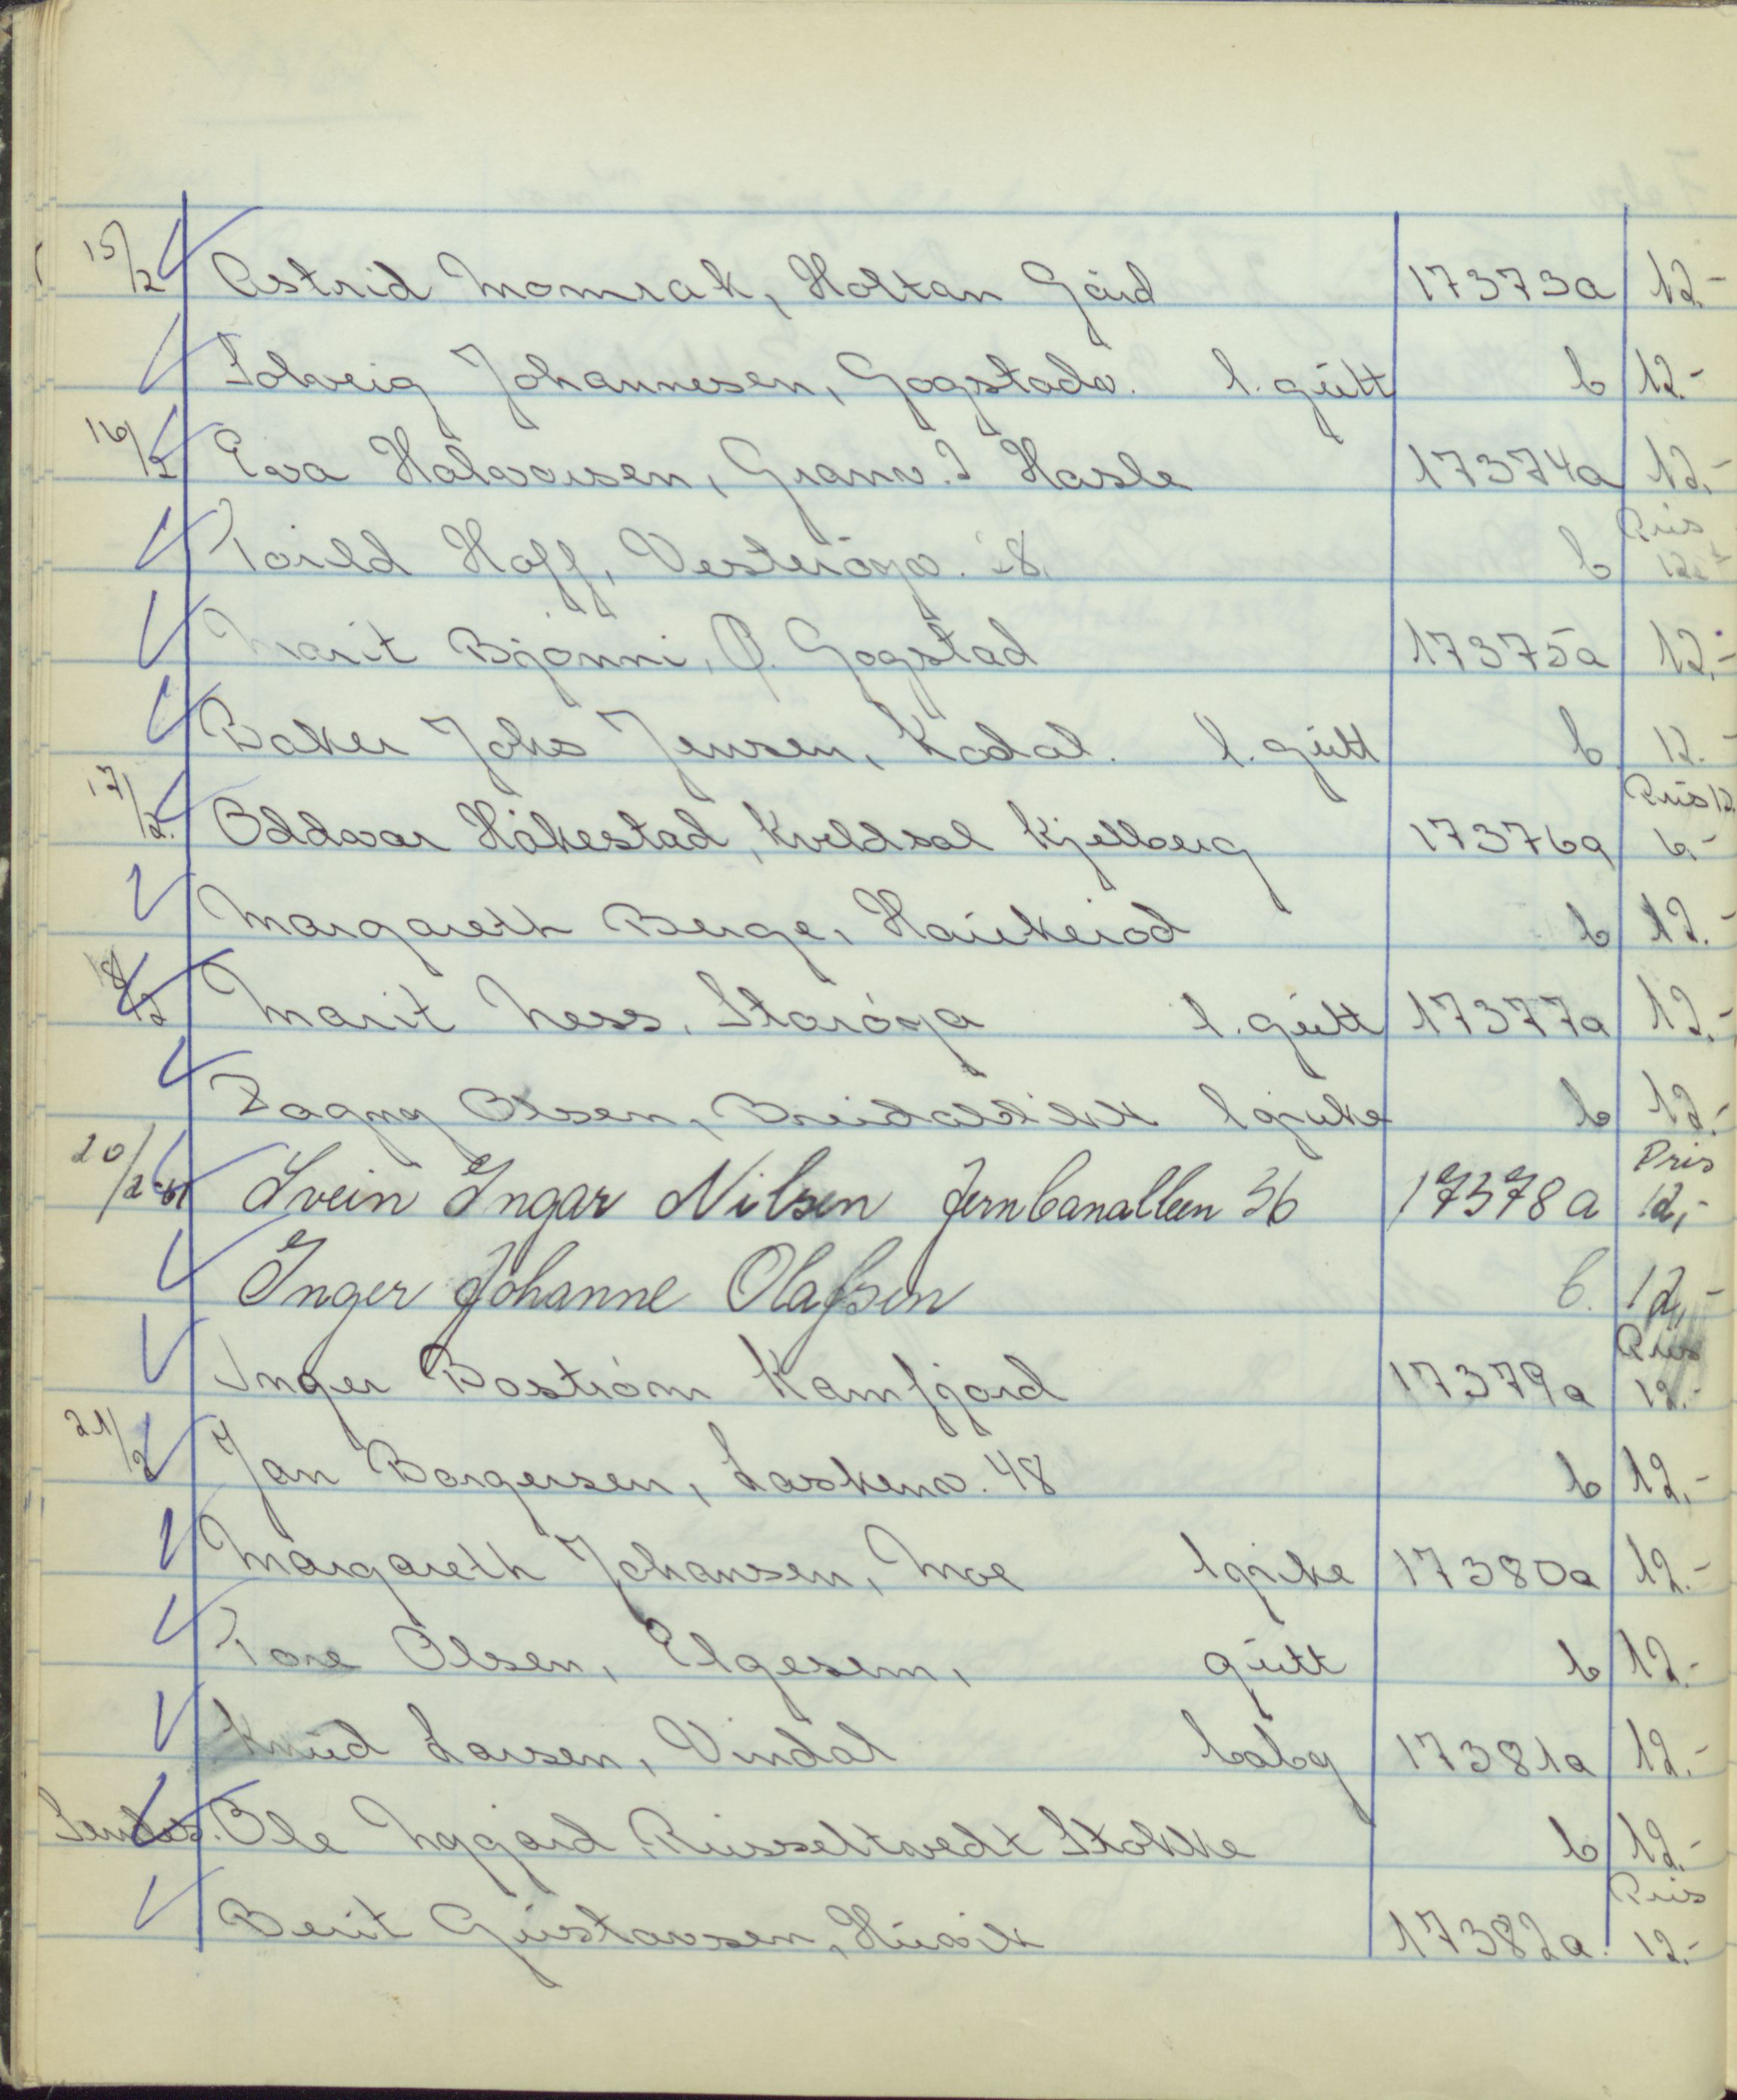 15/2 Astrid Momrak, Holtan Gård 17373a 12.-
Solveig Johannesen, Gogstadv. l. gutt b 12.-
16/2 Eva Halvorsen, Granv. 2 Hasle 17374a 12.-
Torild Hoff, Vesterøyv. 28. b Pris 12.-
Marit Bjønni, Ø. Gogstad 17375a 12.-
Baker Johs Jensen, Kodal. l. gutt b 12.-
17/2. Oddvar Håkestad, Kveldsol Kjellberg 17376a Pris 12. 6,-
Margareth Berge, Haukerød b 12.-
18/2 Marit Ness, Storøya l. gutt 17377a 12.-
Dagny Olsen, Breidablikk l jente b 12.-
20/2-61 Svein Ingar Nilsen Jernbanalleen 36 17378a Pris 12,-
Inger Johanne Olafsen b. 12,-
Inger Bostrøm Kamfjord 17379a Pris 12.-
21/2 Jan Borgersen, Laskenv. 48 b 12,-
Margareth Johansen, Moe l jente 17380a 12.-
Tore Olsen, Elgesem, gutt b 12.-
Knud Larsen, Vindal baby 17381a 12.-
Sendes. Ole Nygård, Russeltvedt Stokke b 12.-
Berit Gustavsen, Huvik 17382a. Pris 12.-